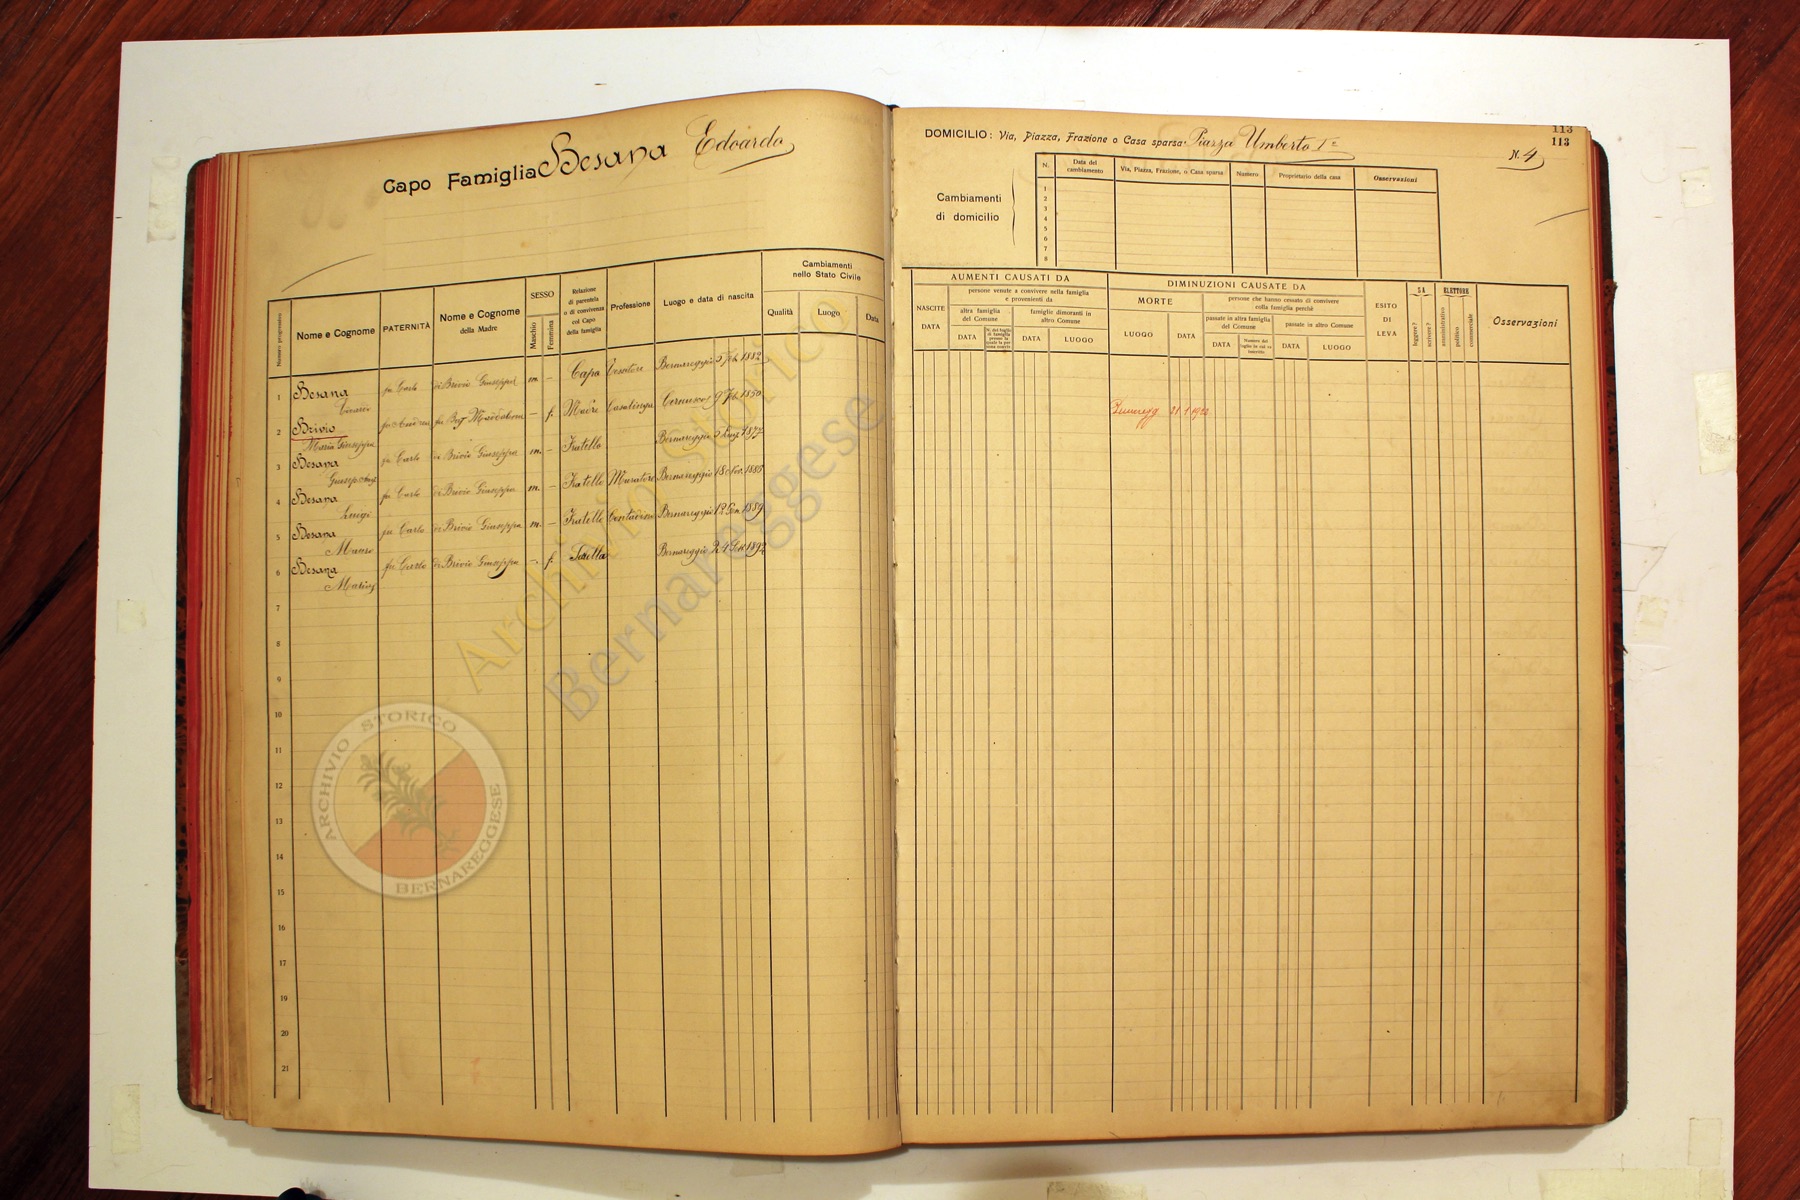 Capo Famiglia Besana Edoardo
Numero progressivo
Nome e Cognome
PATERNITÀ
Nome e Cognome
della Madre
SESSO
Maschio
Femmina
Relazione
di parentela
o di convivenza
col Capo
della famiglia
Professione
Luogo e data di nascita
Cambiamenti
nello Stato Civile
Qualità
Luogo
Data
1 Besana fu Carlo di Brivio Giuseppa m. – Capo Tessitore Bernareggio 1882
2 Brivio fu Andrea – f. Madre Casalinga 1850
Maria Giuseppa
3 Besana fu Carlo di Brivio Giuseppa m. – Fratello Bernareggio 1877
4 Besana fu Carlo di Brivio Giuseppa m. – Fratello Muratore Bernareggio 18
Luigi
5 Besana fu Carlo di Brivio Giuseppa m. – Fratello Contadino Bernareggio 12 Gen. 1889
Mauro
6 Besana fu Carlo di Brivio Giuseppa – f. Sorella Bernareggio 24 1892
7
8
9
10
11
12
13
14
15
16
17
18
19
20
21
Archivio Storico
Bernareggese
ARCHIVIO STORICO
BERNAREGGESE
113
113
DOMICILIO: Via, Piazza, Frazione o Casa sparsa Piazza Umberto I°
N. 4
Cambiamenti
di domicilio
N.
Data del
cambiamento
Via, Piazza, Frazione, o Casa sparsa
Numero
Proprietario della casa
Osservazioni
1
2
3
4
5
6
7
8
AUMENTI CAUSATI DA
NASCITE
DATA
persone venute a convivere nella famiglia
e provenienti da
altra famiglia
del Comune
DATA
famiglie dimoranti in
altro Comune
DATA
LUOGO
DIMINUZIONI CAUSATE DA
MORTE
LUOGO
DATA
persone che hanno cessato di convivere
colla famiglia perchè
passate in altra famiglia
del Comune
DATA
passate in altro Comune
DATA
LUOGO
ESITO
DI
LEVA
SA
leggere?
scrivere?
ELETTORE
amministrativo
politico
commerciale
Osservazioni